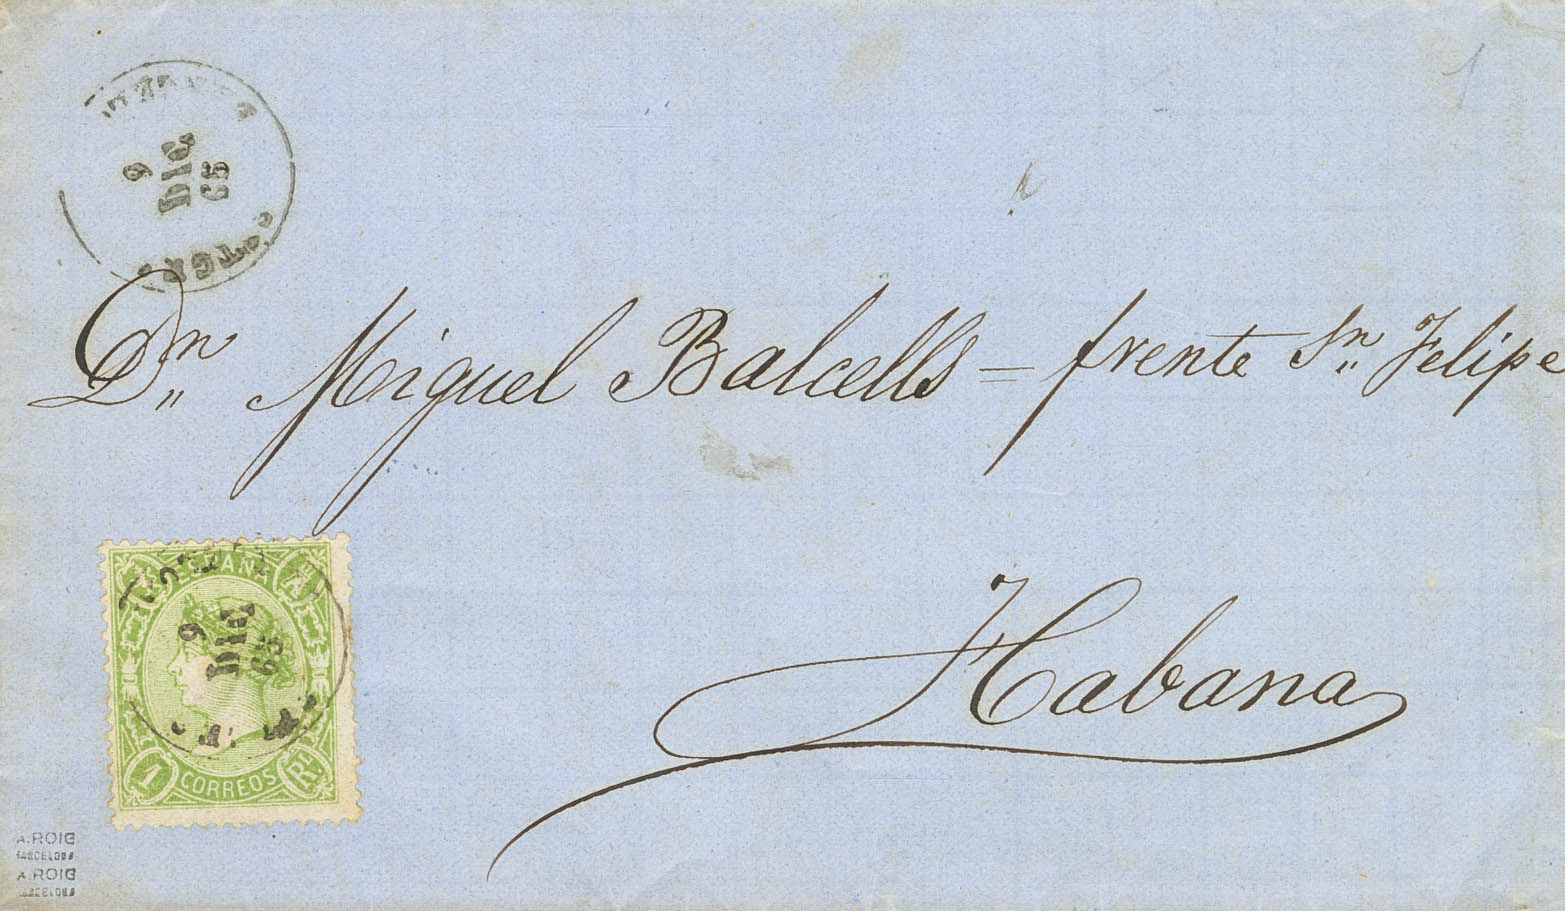 9
DIC
65
Dn. Miguel Balcells = frente Sn. Felipe
Habana
ESPAÑA
9
DIC
65
1 CORREOS Rl
A.ROIG
BARCELONA
A.ROIG
BARCELONA